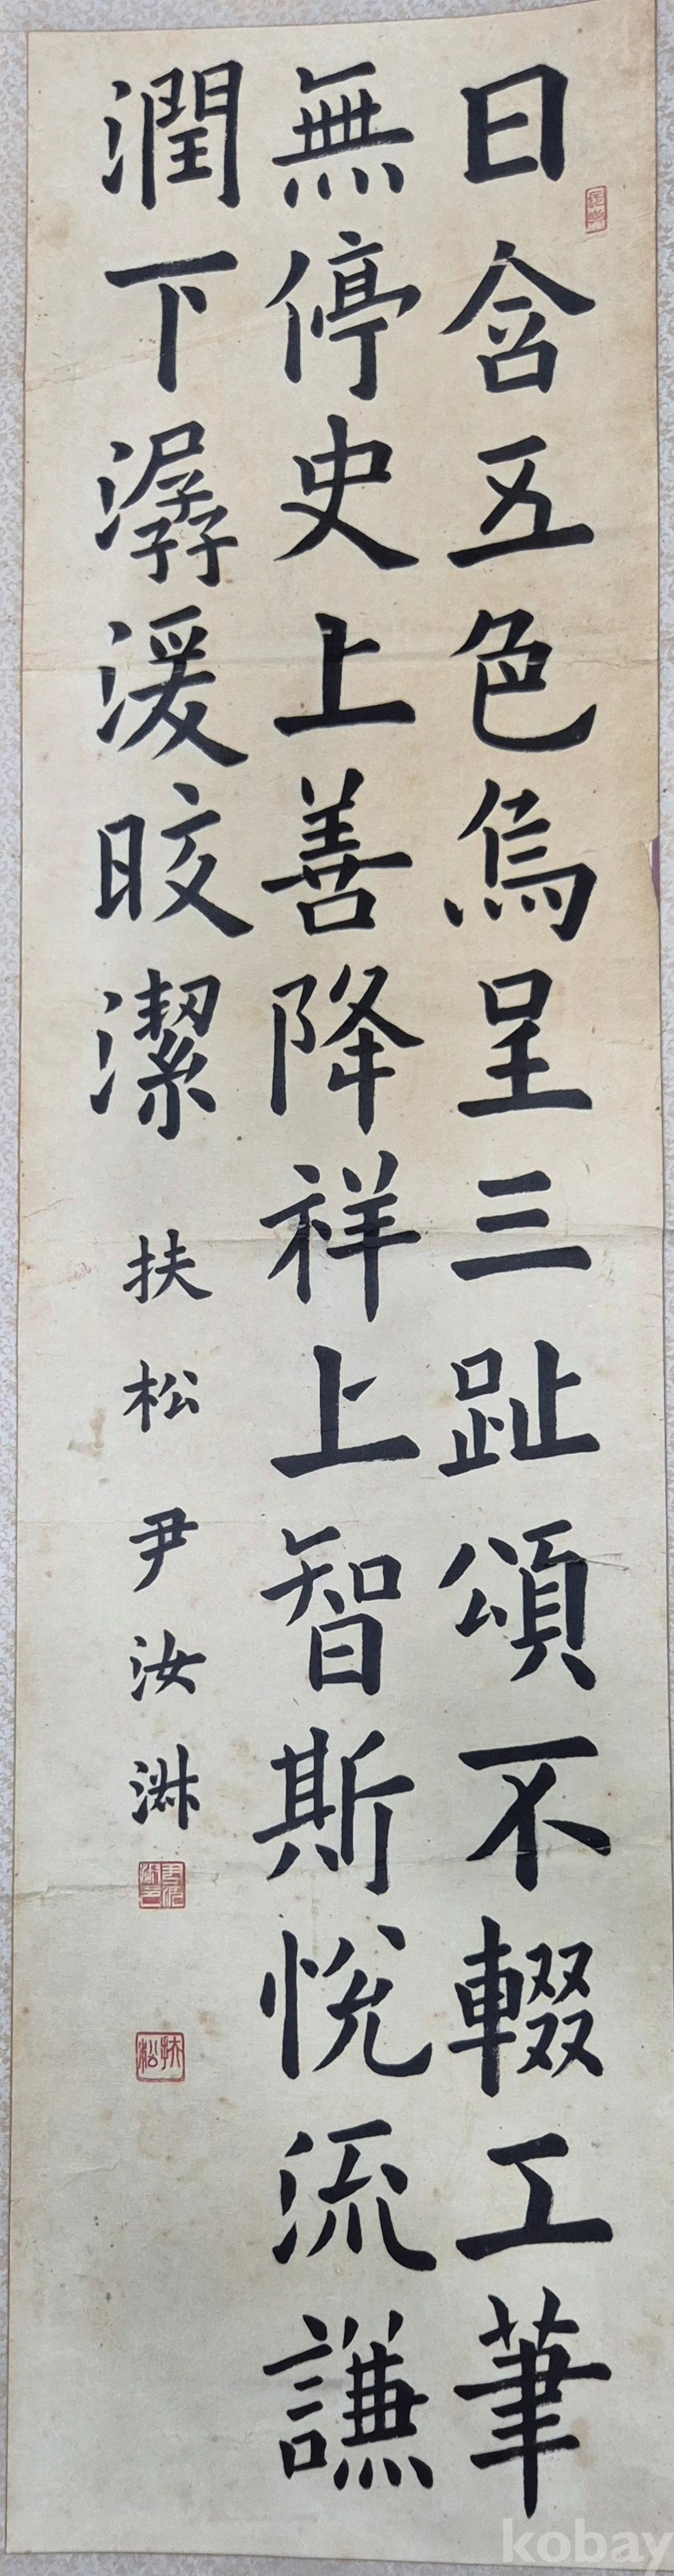 日含五色烏呈三趾頌不輟工筆
無停史上善降祥上智斯悅流謙
潤下潺湲皎潔
扶松 尹汝淋
扶松
kobay